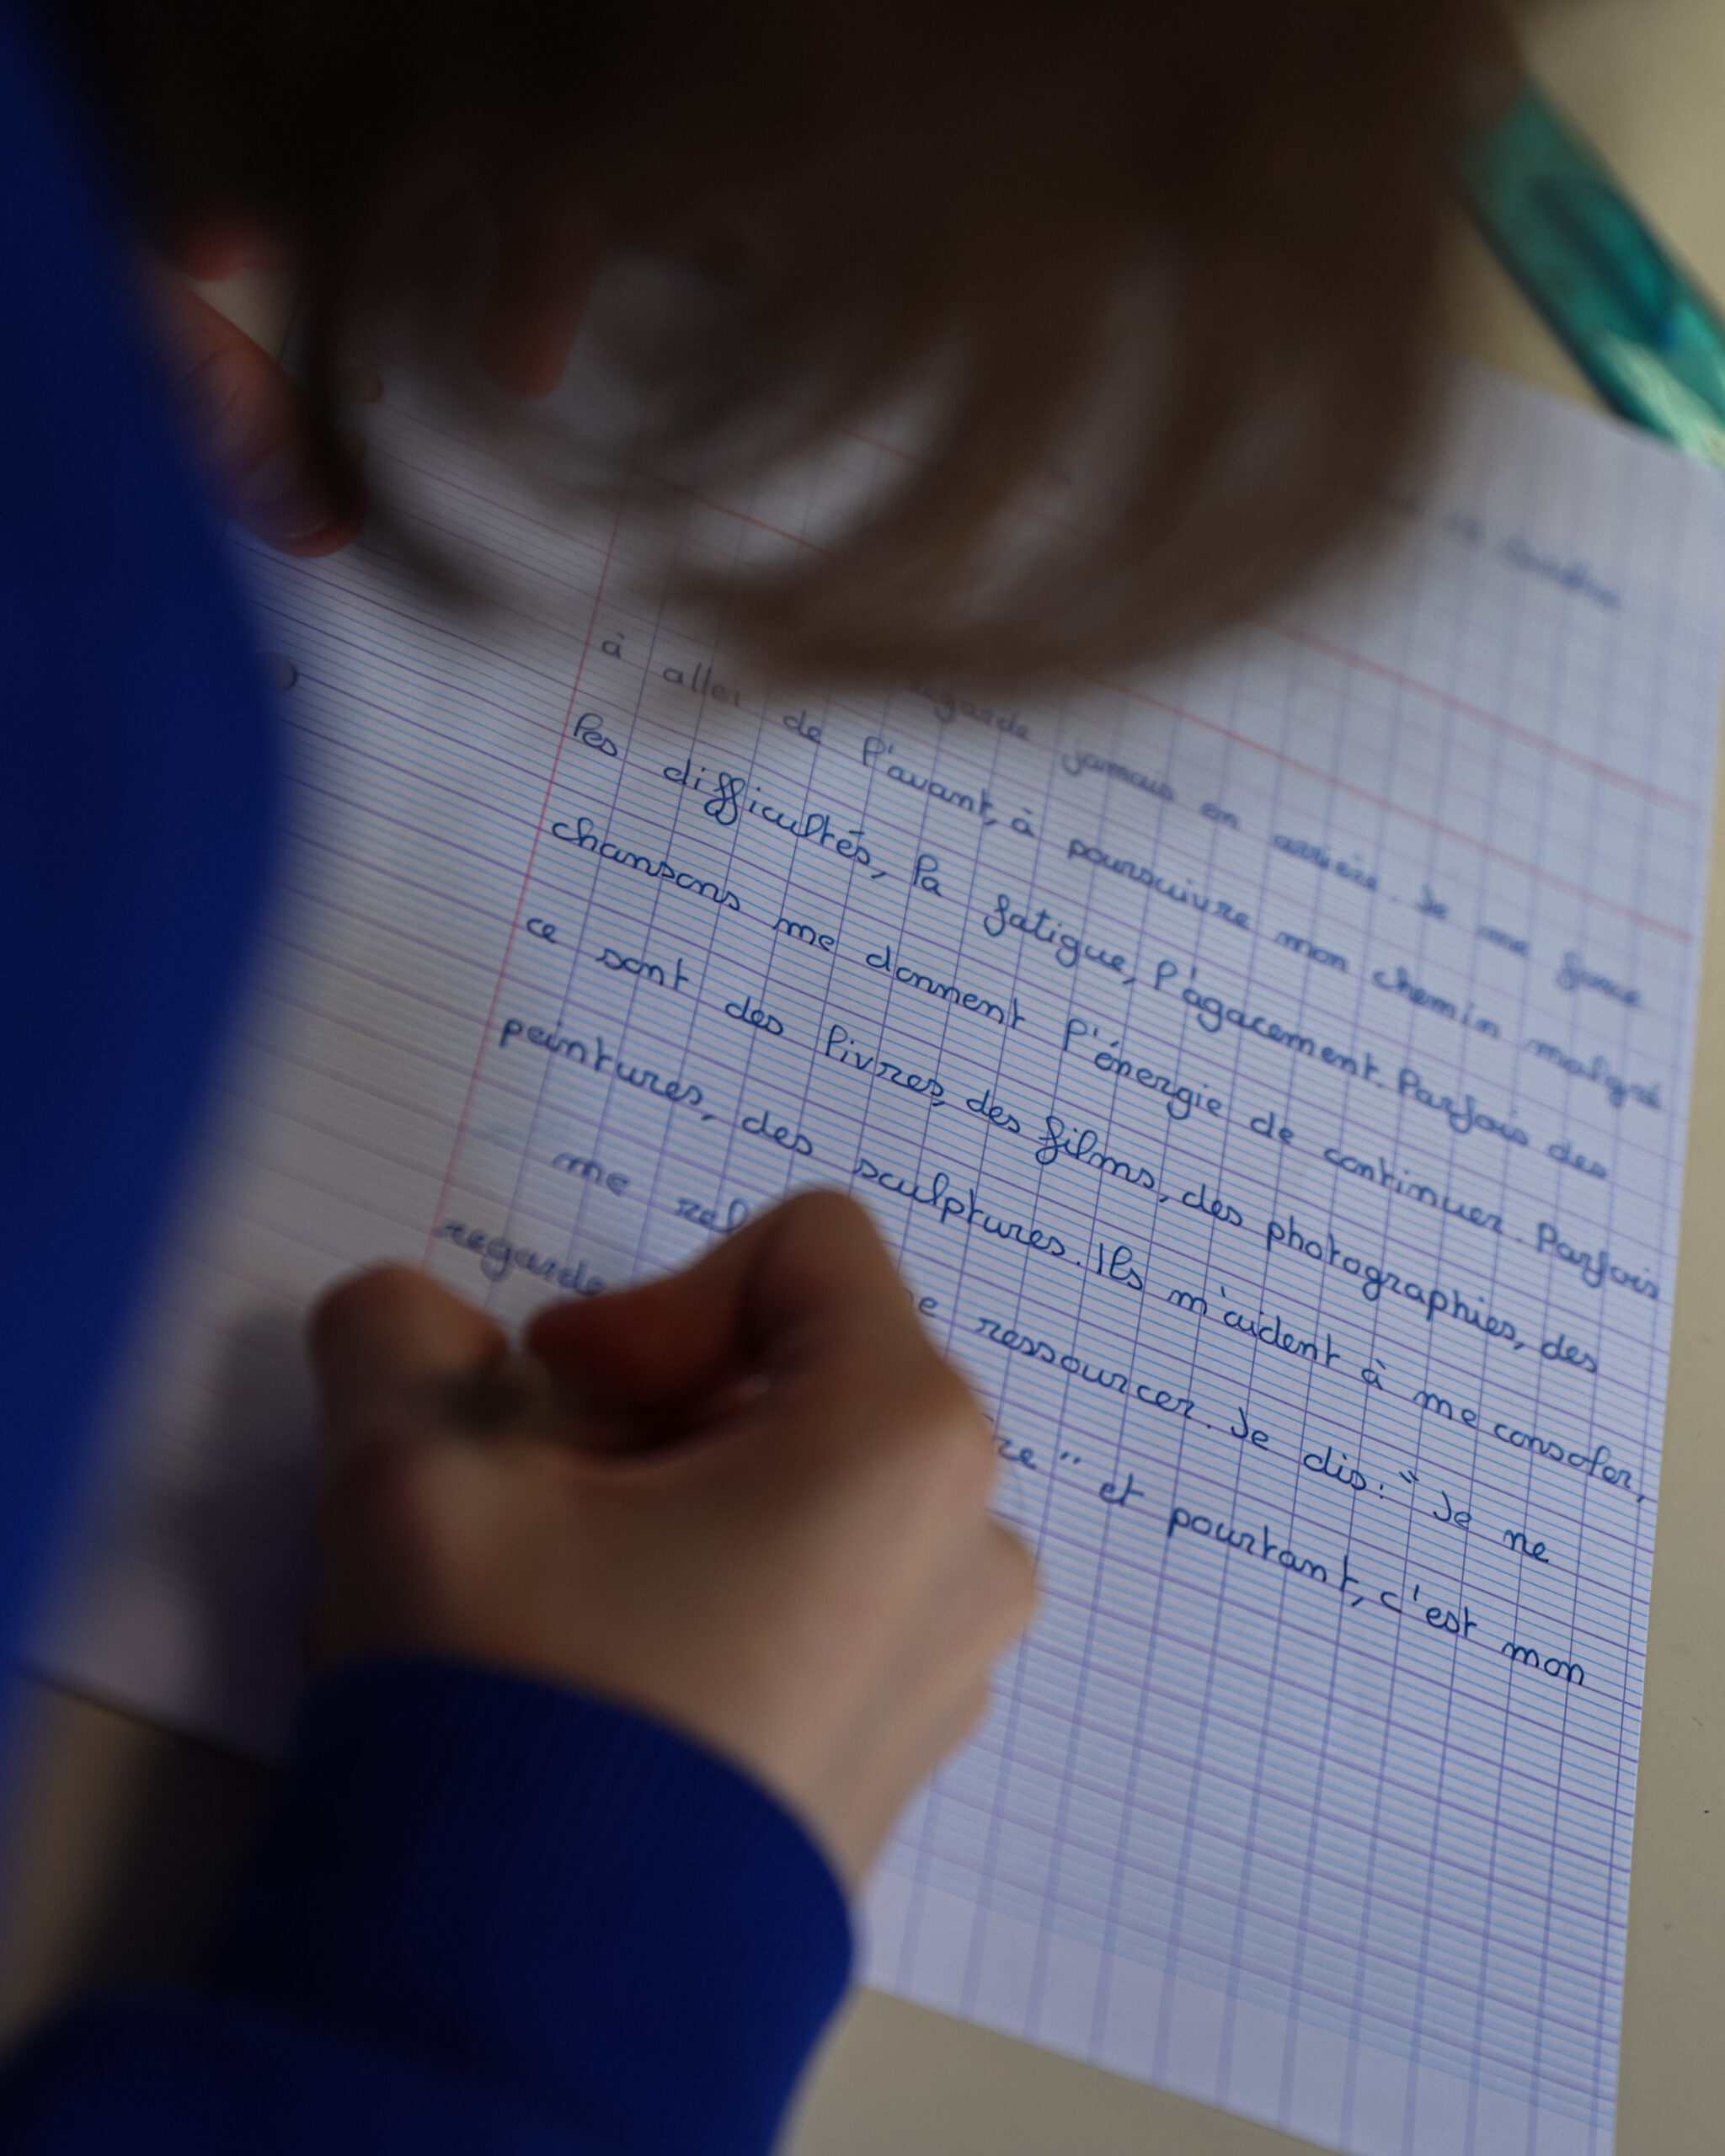 regarde jamais en arrière. Je me force
à aller de l'avant, à poursuivre mon chemin malgré
les difficultés, la fatigue, l'agacement. Parfois des
chansons me donnent l'énergie de continuer. Parfois
ce sont des livres, des films, des photographies, des
peintures, des sculptures. Ils m'aident à me consoler,
me ressourcer. Je dis : " Je ne
regarde " et pourtant, c'est mon